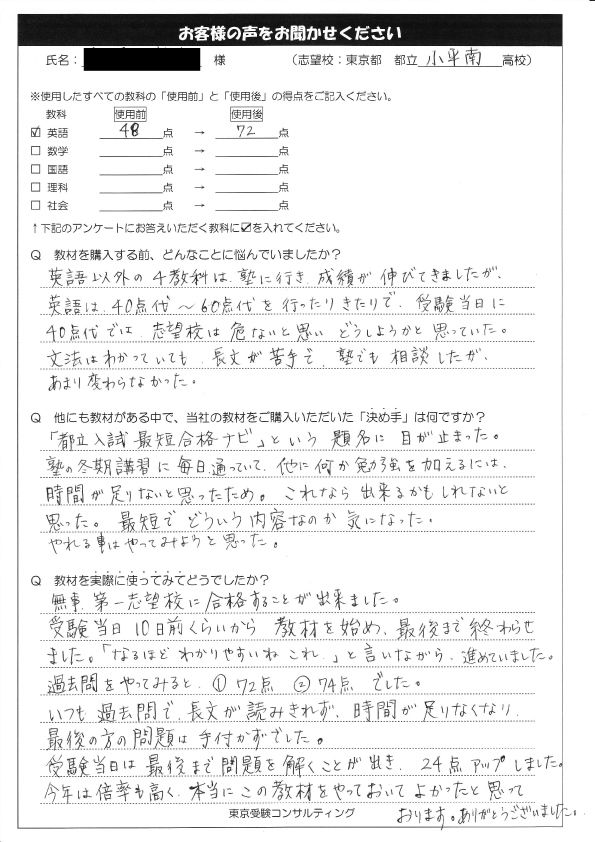 お客様の声をお聞かせください
氏名： 様 （志望校：東京都 都立 小平南 高校）
※使用したすべての教科の「使用前」と「使用後」の得点をご記入ください。
教科 使用前 使用後
☑ 英語 48 点 → 72 点
□ 数学 点 → 点
□ 国語 点 → 点
□ 理科 点 → 点
□ 社会 点 → 点
↑下記のアンケートにお答えいただく教科に☑を入れてください。
Q 教材を購入する前、どんなことに悩んでいましたか？
英語以外の4教科は、塾に行き、成績が伸びてきましたが、
英語は、40点代～60点代を行ったりきたりで、受験当日に
40点代では、志望校は危ないと思い どうしようかと思っていた。
文法はわかっていても、長文が苦手で、塾でも相談したが、
あまり変わらなかった。
Q 他にも教材がある中で、当社の教材をご購入いただいた「決め手」は何ですか？
「都立入試最短合格ナビ」という題名に目が止まった。
塾の冬期講習に毎日通っていて、他に何か勉強を加えるには、
時間が足りないと思ったため。これなら出来るかもしれないと
思った。最短でどういう内容なのか気になった。
やれる事はやってみようと思った。
Q 教材を実際に使ってみてどうでしたか？
無事、第一志望校に合格することが出来ました。
受験当日10日前くらいから教材を始め、最後まで終わらせ
ました。「なるほどわかりやすいねこれ。」と言いながら、進めていました。
過去問をやってみると、①72点 ②74点でした。
いつも過去問で、長文が読みきれず、時間が足りなくなり、
最後の方の問題は手付かずでした。
受験当日は最後まで問題を解くことが出き、24点アップしました。
今年は倍率も高く、本当にこの教材をやっておいてよかったと思って
おります。ありがとうございました。
東京受験コンサルティング